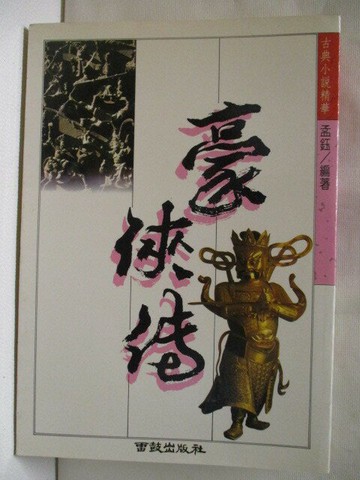 古典小說精華
孟鈺／編著
豪俠傳
雷鼓出版社